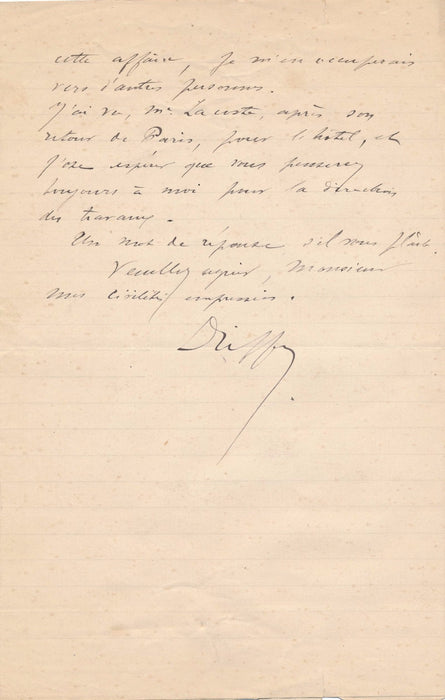 cette affaire, je m'en occuperais
vers d'autres personnes.
J'ai vu, Mr Lacoste, après son
retour de Paris, pour l'hôtel, et
j'ose espérer que vous penserez
toujours à moi pour la direction
des travaux.
Un mot de réponse s'il vous plait.
Veuillez agréer, Monsieur
mes civilités empressées.